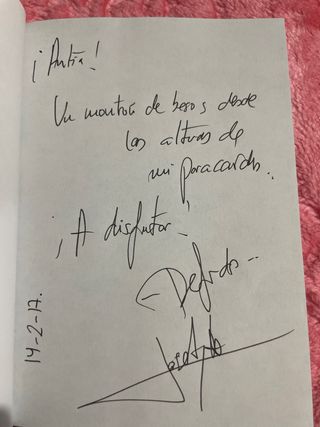 ¡Antía!
Un montón de besos desde
las alturas de
mi paracaídas..
¡A disfrutar!
14-2-17.